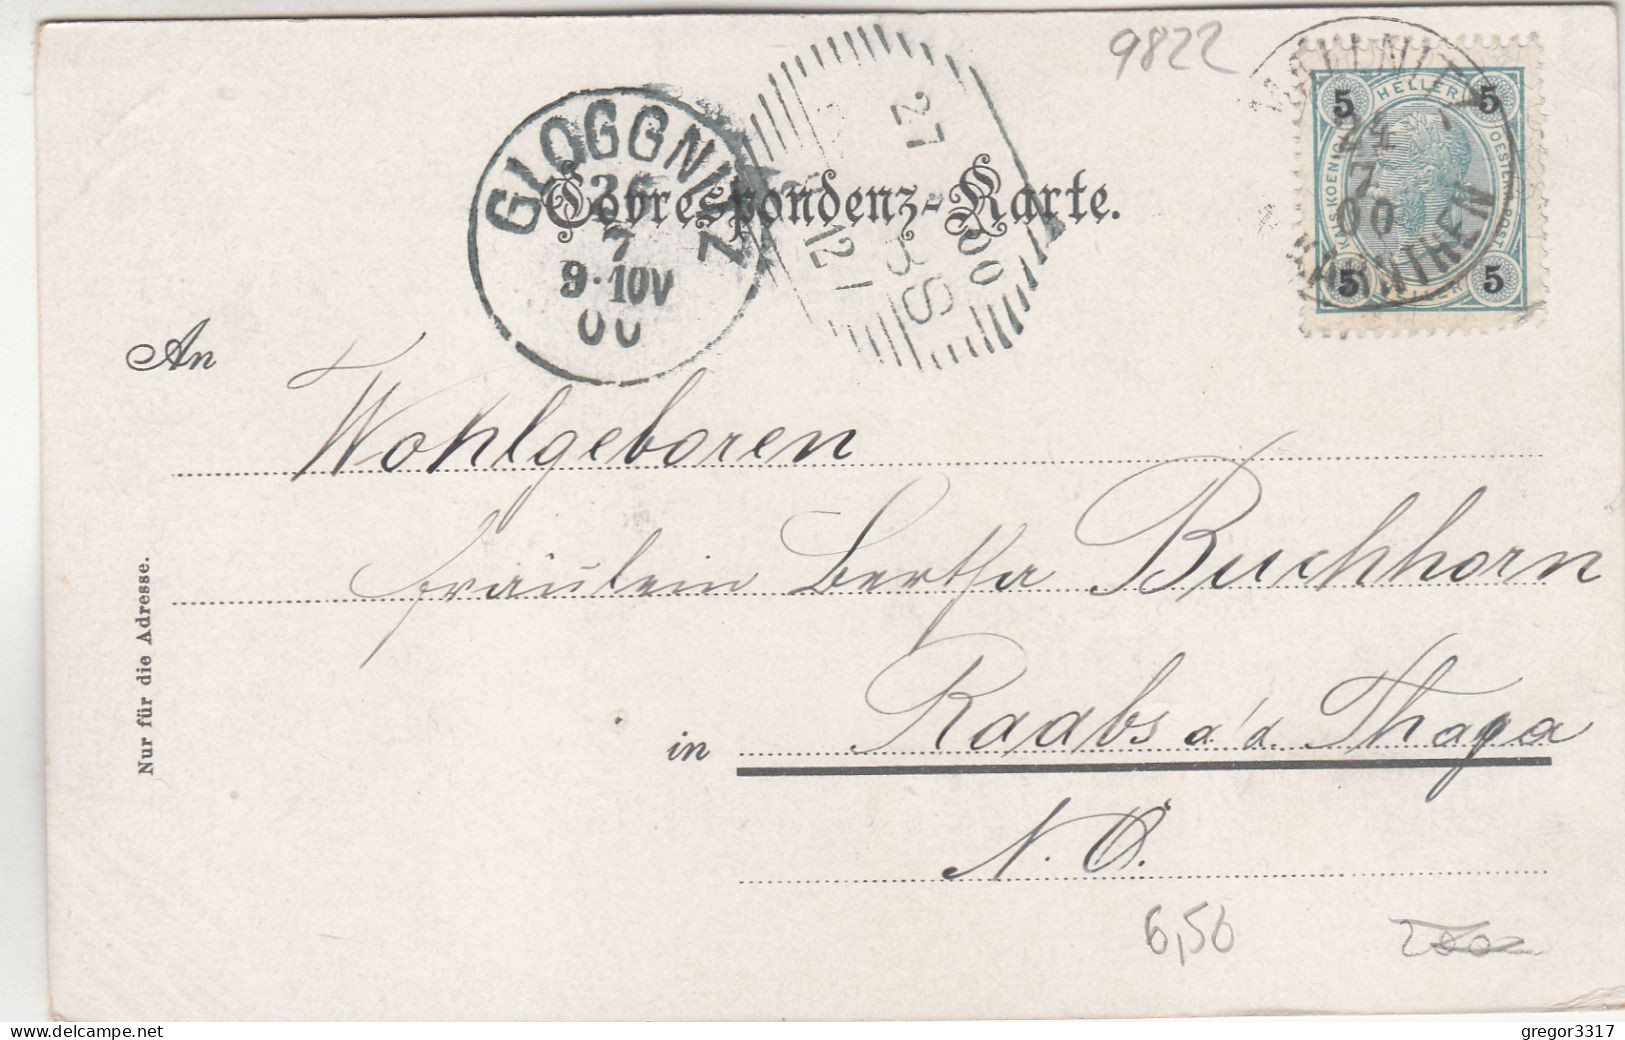 9822
5 HELLER 5
KAIS. KOENIGL. OESTERR. POST.
5 HELLER 5
24
7
00
KAERNTHEN
GLOGGNITZ
26
7
9·10V
00
27
00
12 1
Correspondenz-Karte.
An
Wohlgeboren
Fräulein Bertha Buchhorn
in Raabs a/d. Thaya
N. Ö.
Nur für die Adresse.
6,50
200
gregor3317
www.delcampe.net